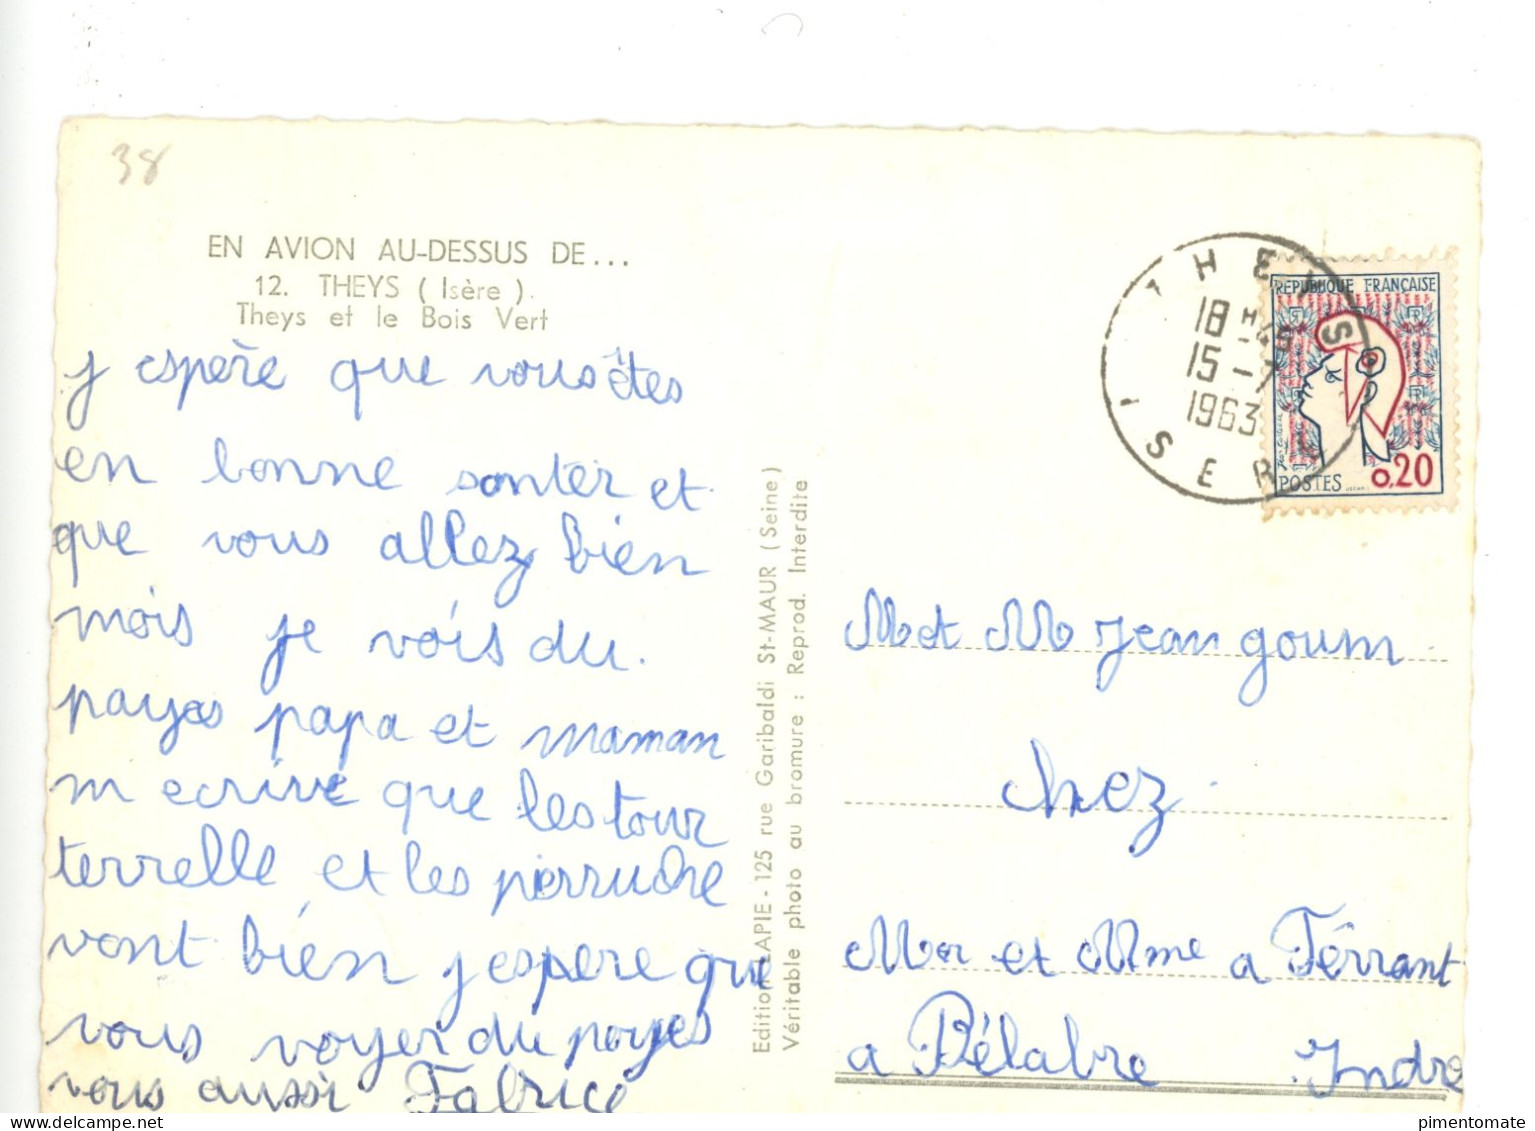 38
EN AVION AU-DESSUS DE...
12. THEYS ( Isère ).
Theys et le Bois Vert
j espère que vous êtes
en bonne santer et
que vous allez bien
mois je vois du.
payes papa et maman
m ecrive que les tour
terrelle et les perruche
vont bien j espere que
vous voyer du payes
vous aussi Fabrice
Edition LAPIE - 125 rue Garibaldi St-MAUR (Seine)
Véritable photo au bromure : Reprod. Interdite
THEYS
18 H 45
15 - 7
1963
ISERE
REPUBLIQUE FRANÇAISE
POSTES
0,20
M et M Jean goum
chez
Mor et Mme a Férrant
a Bélabre Indre
pimentomate